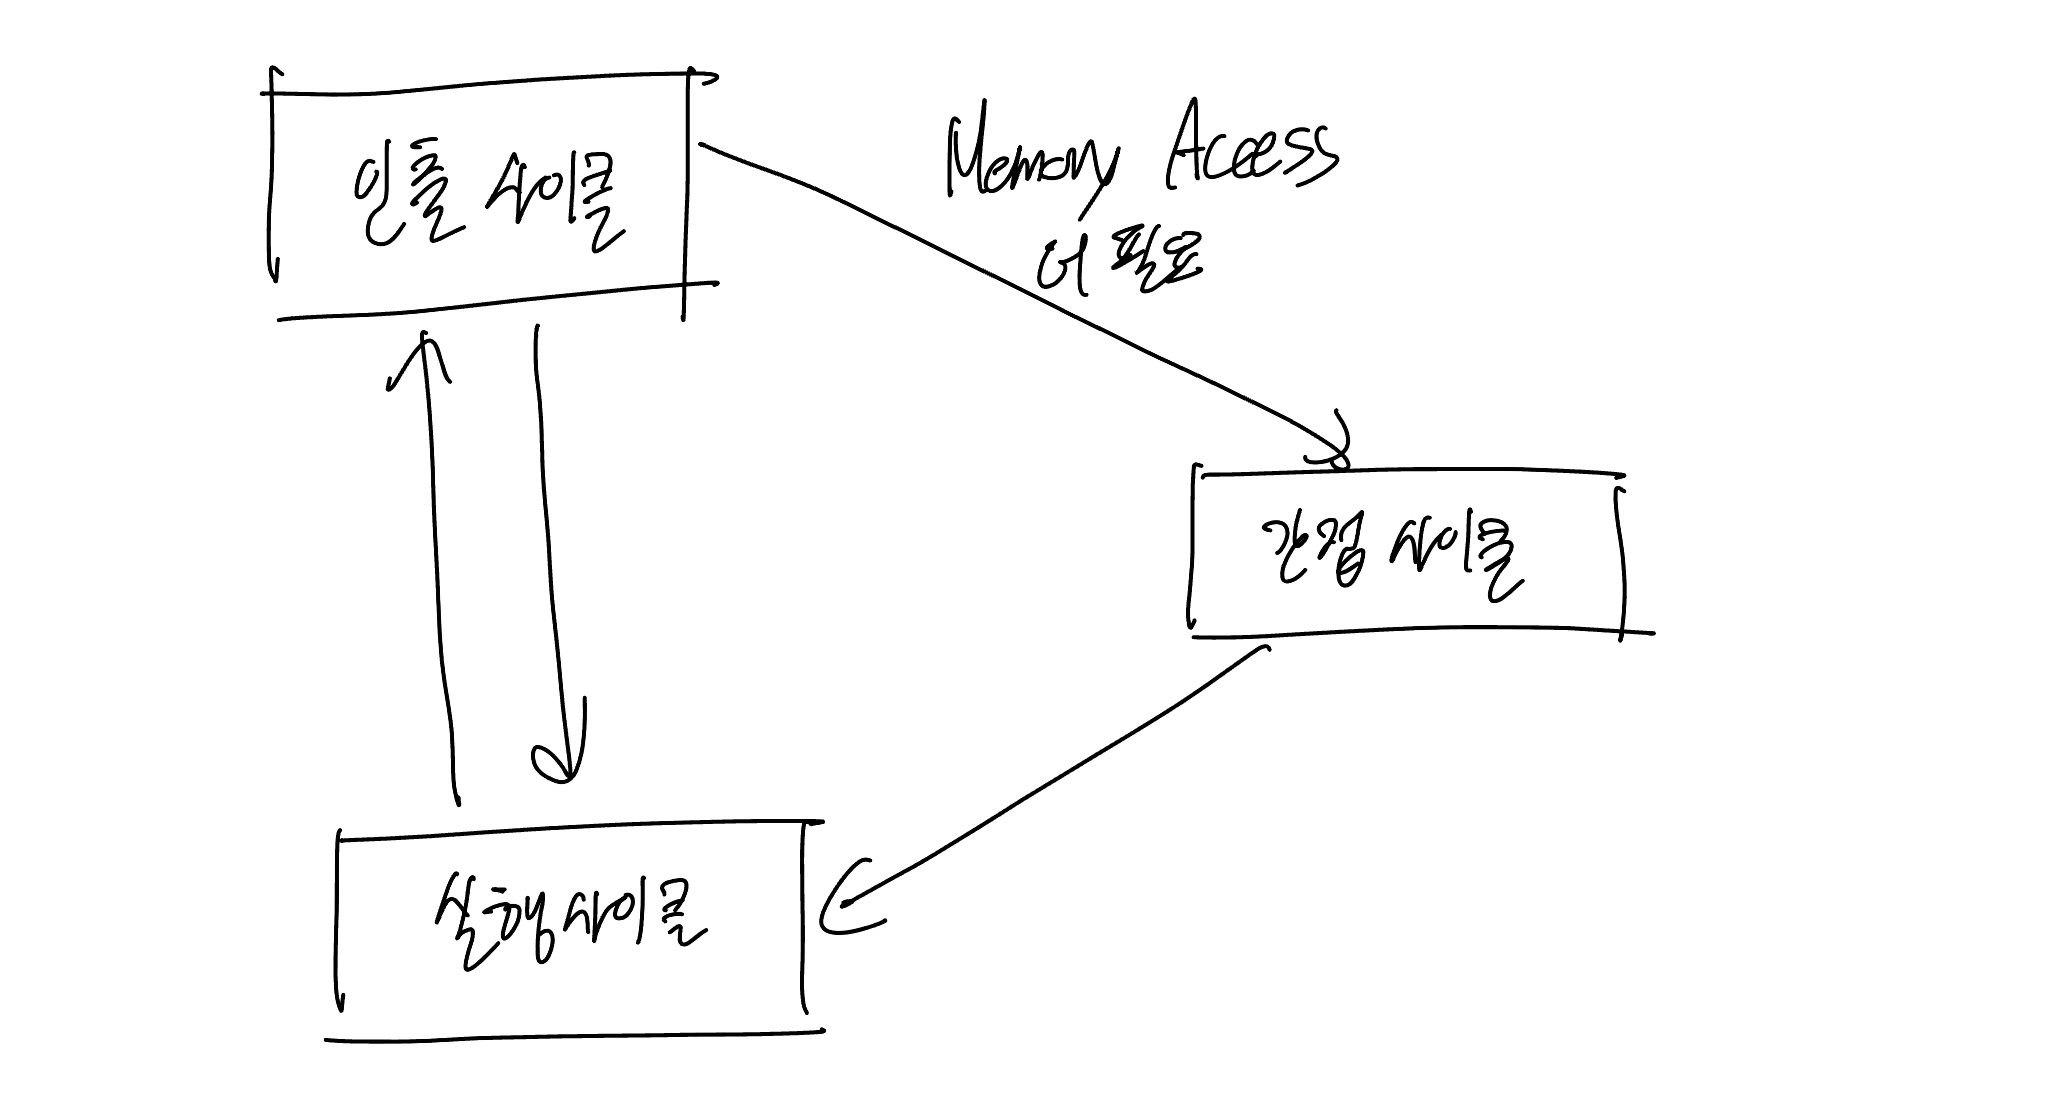 인출 사이클
Memory Access
더 필요
간접 사이클
실행 사이클